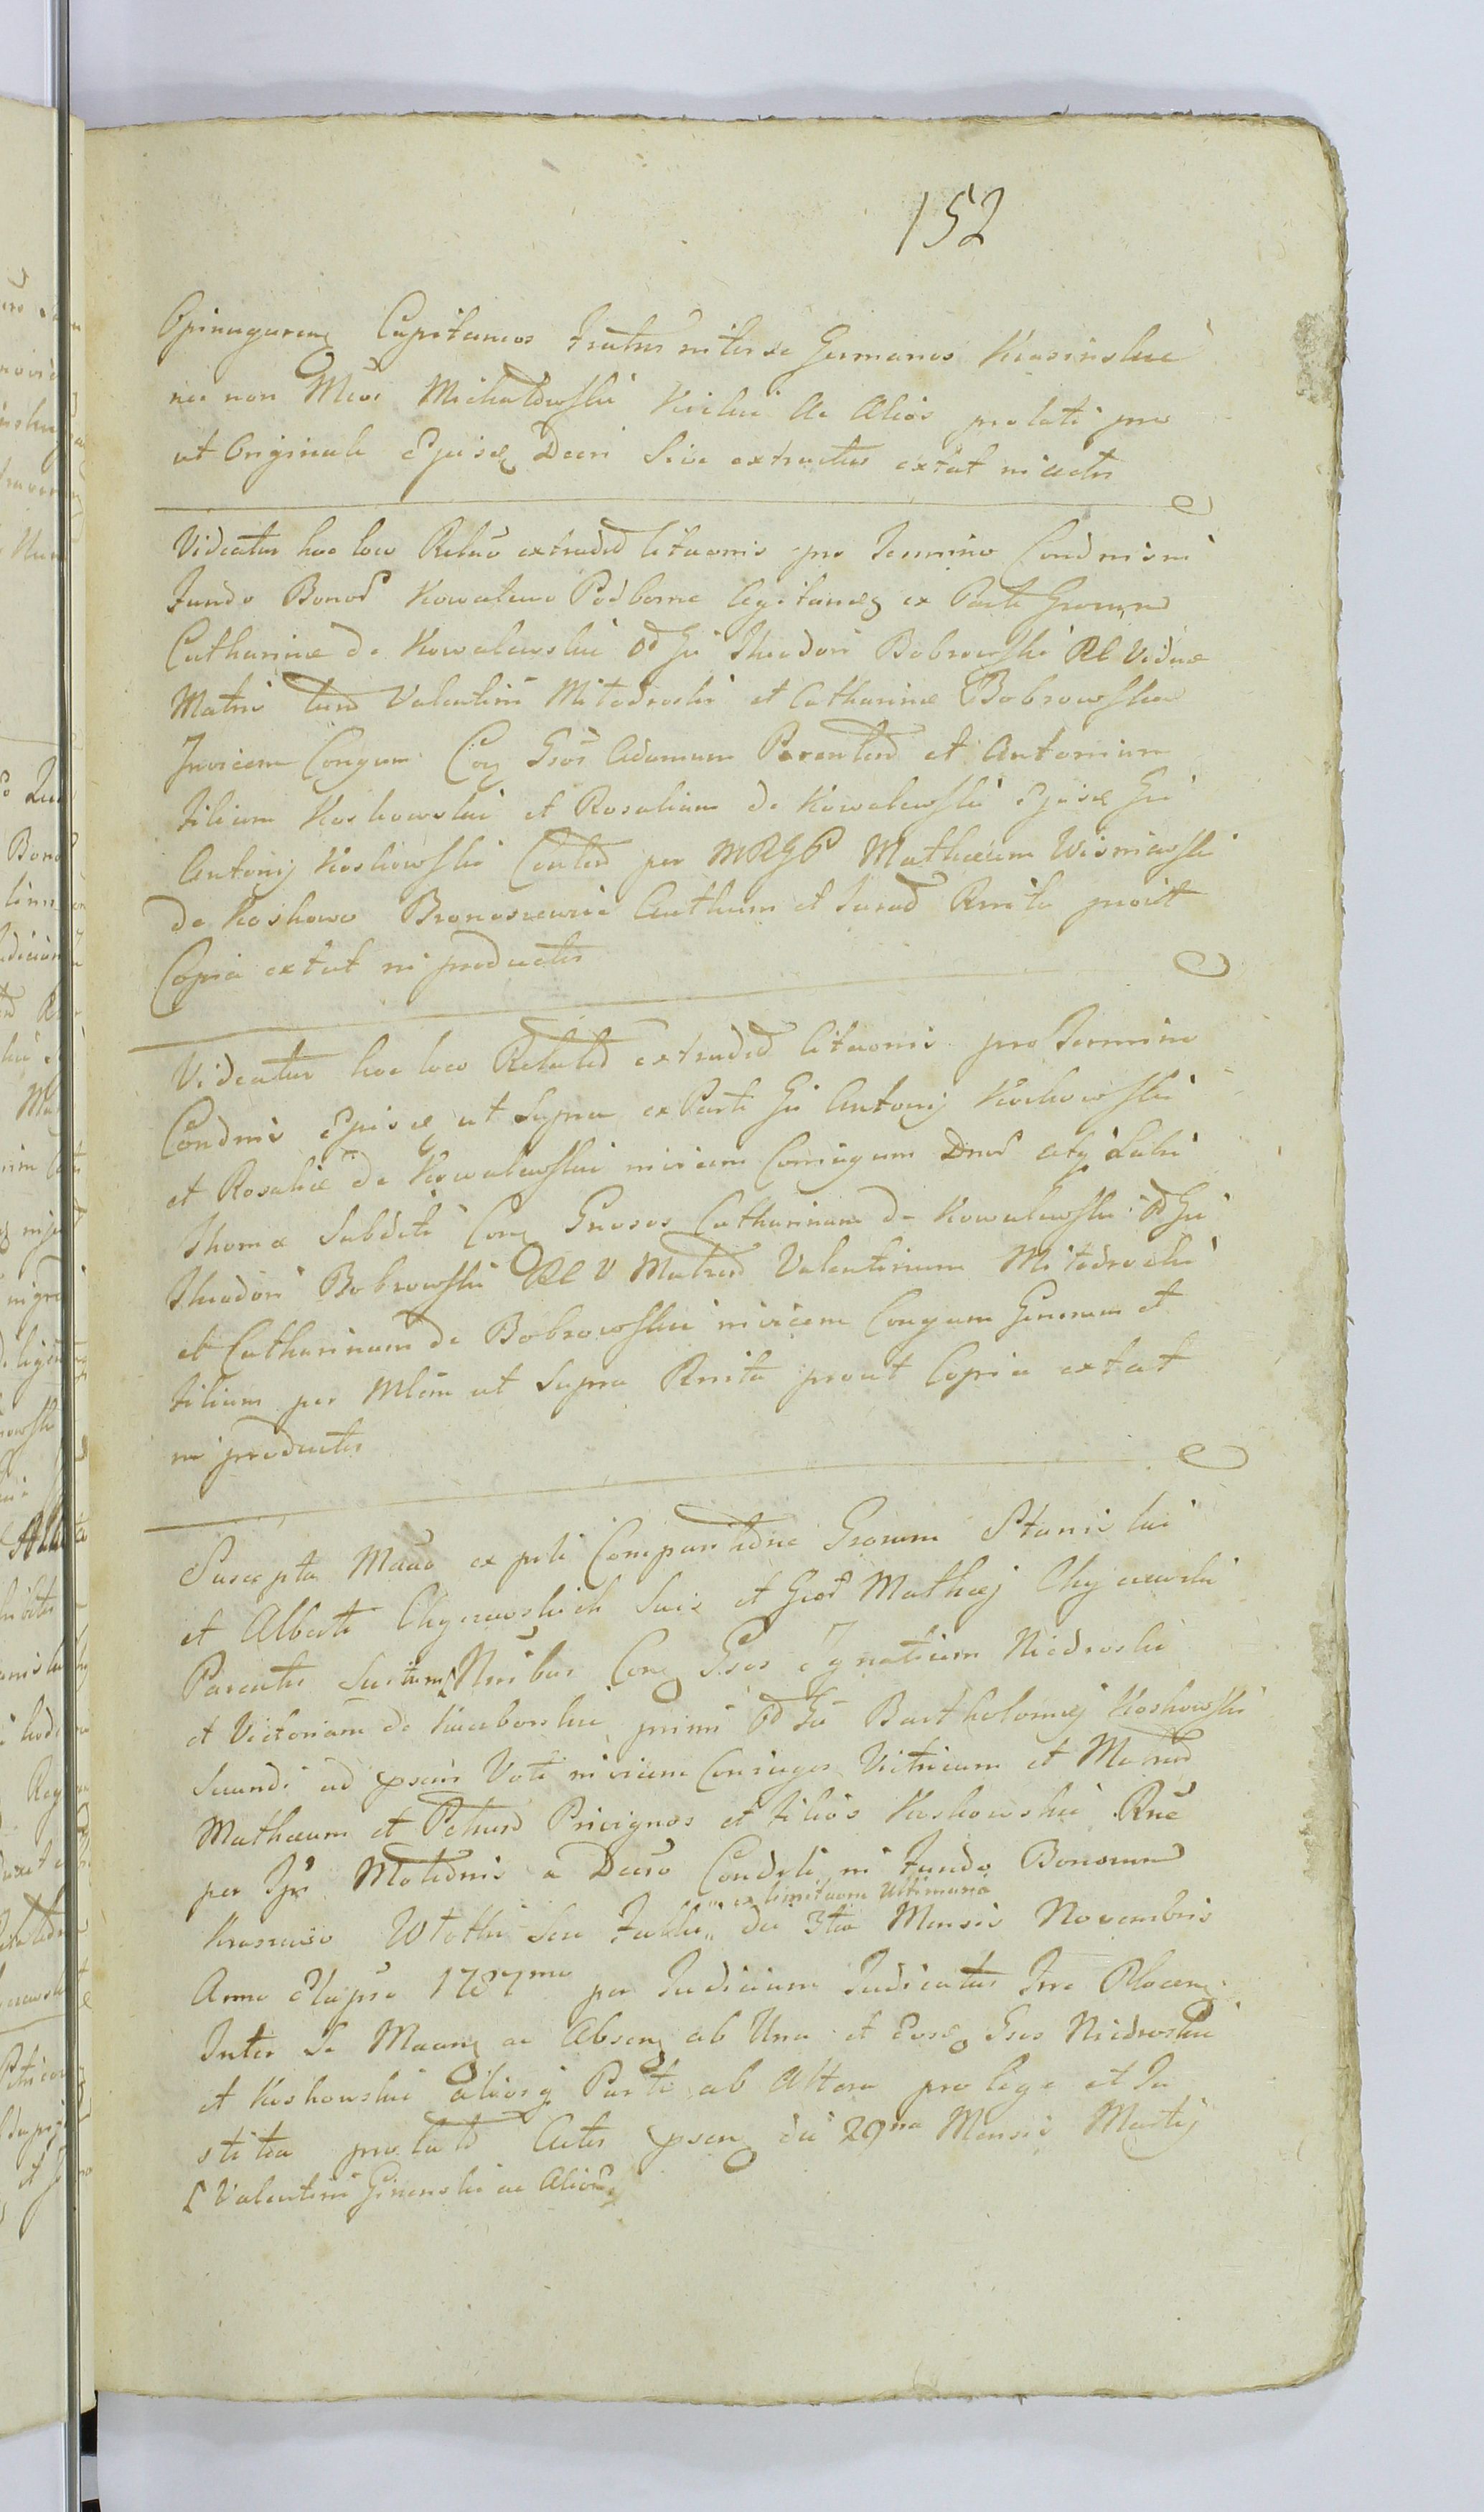 152
Opinogoren Capitaneos fratres inter se Germanos Krasinskie
nec non Mcos Michałowski Kicki Ac Alios prolati pro
ut Originale Ejusd Decri Sive extractus extat in actis
Videatur hoc loco Relaõ extraded Citaonis pro Termino Condnis in
fundo Bonor Kowalewo Podborne legitan ex Parte Grorum
Catharinæ de Kowalewskie Od Gi Theodori Bobrowski Rl Viduæ
Matris tum Valentini Mitodroski et Catharinæ Bobrowskie
Invicem Conjum Con Gsos Adamum Parentem et Antonium
filium Koskowskie et Rosaliam de Kowalewskie Ejusd Gi
Antonij Koskowski Contem per MRGP Mathæum Wisniewski
de Koskowo Bronoszewice Authum et Jurad Rnita prout
Copia extat in productis
Videatur hoc loco Relatio extraded Citaonis pro Termino
Condnis Ejusd ut Supra ex Parte Gi Antonij Koskowski
et Rosaliæ de Kowalewskie invicem Coniugum Dnor atq Labi
Thomæ Subditi Con Gnosos Catharinam de Kowalewskie Od Gi
Theodori Bobrowski Rl V Matrem Valentinum Mitodroski
et Catharinam de Bobrowskie invicem Conjugum Generum et
filiam per Mlem ut Supra Rnita prout Copia extat
in productis
Suscepta Maõo ex parte Comparitõne Grorum Stanislai
et Alberti Chyczewskich Suis et Gror Mathæj Chyczewski
Parentis Suitum Nnibus Con Gsos Ignatium Niedroski
et Victoriam de Kucborskie primi Od Gi Bartholomej Koskowski
Secundi ad psens Voti invicem Coniuges Victricum et Matrem
Mathæum et Petrum Privignos et filios Koskowskie Rne
per Motednis a Decro Condeli in fundo Bonorum
Kraszewo Witotki Seu Falki „ ex limitaone Ultimaria „ die 3tia Mensis Novembris
Anno Elapso 1787mo per Judicium Judicatus Trre Plocen
Inter Se Maan ac Absen ab Una et Eosd Gsos Niedroskie
et Koskowskie aliosq Parte ab Altera pro lege et Ju
stitia prolatd Actis psen die 29na Mensis Martij
[ Valentini Ginenski ac Alior